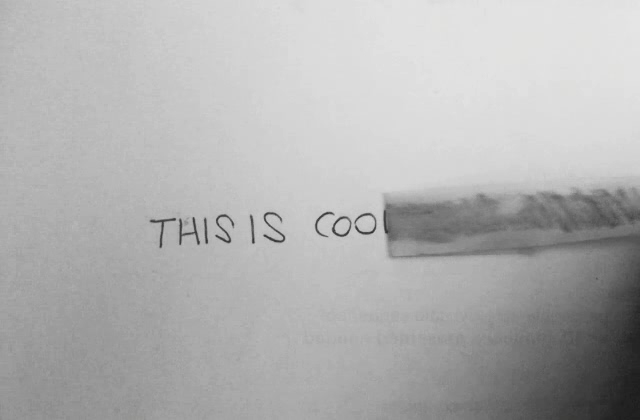 THIS IS COO